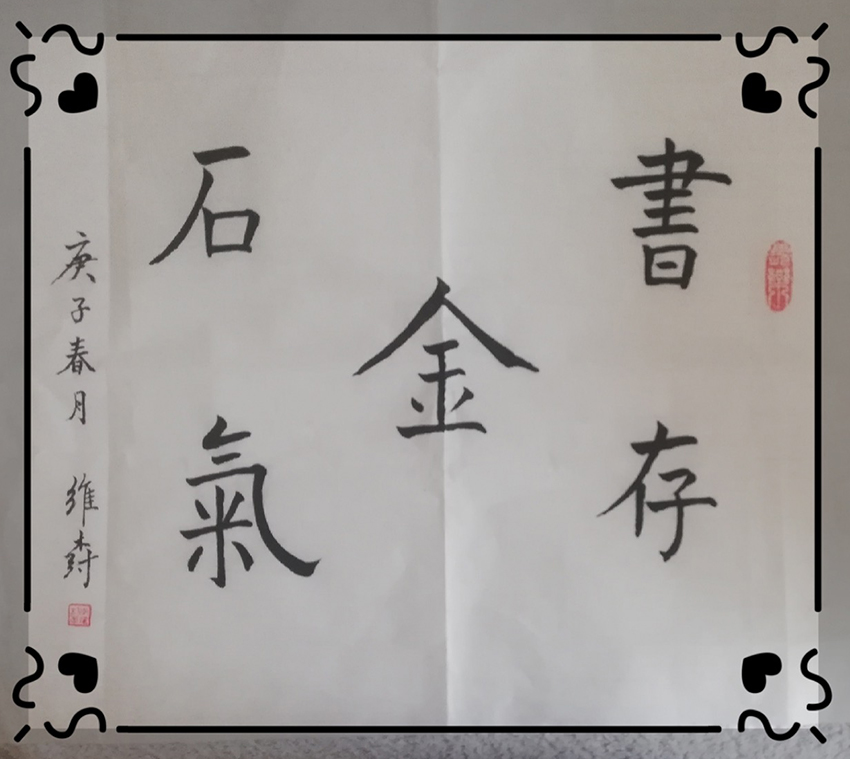 書存
金
石氣
庚子春月 維